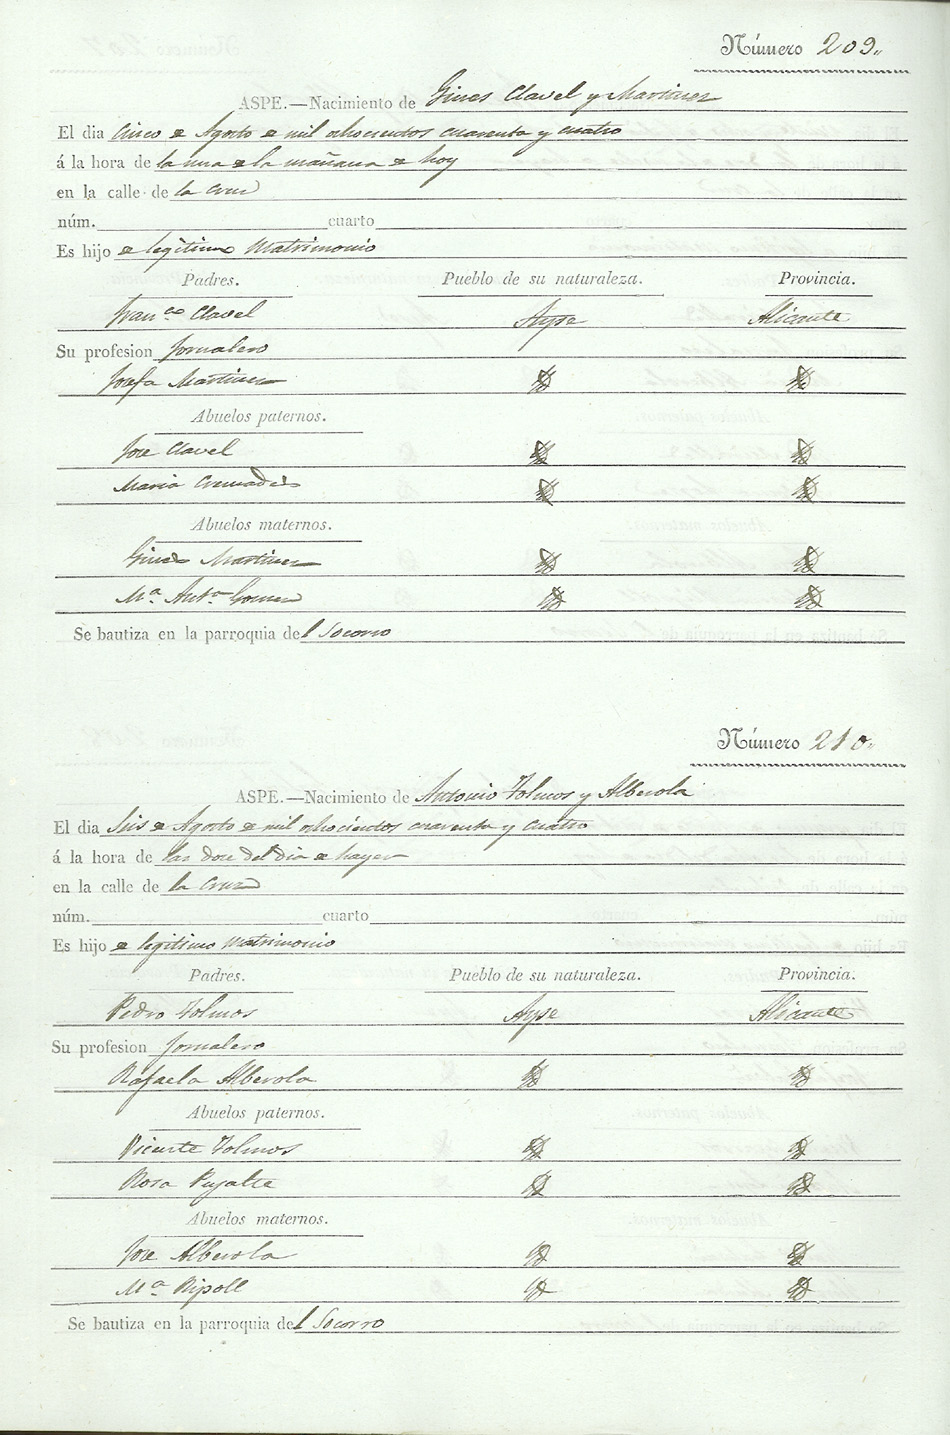 Número 209.
ASPE.—Nacimiento de Gines Clavel y Martinez
El dia Cinco de Agosto de mil ochocientos cuarenta y cuatro
á la hora de la una de la mañana de hoy
en la calle de la Cruz
núm. cuarto
Es hijo de legitimo Matrimonio
Padres. Pueblo de su naturaleza. Provincia.
Fran.co Clavel Aspe Alicante
Su profesion Jornalero
Josefa Martinez
Abuelos paternos.
Jose Clavel
Maria Cremades
Abuelos maternos.
Gines Martinez
M.a Ant.a Gomez
Se bautiza en la parroquia del Socorro
Número 210.
ASPE.—Nacimiento de Antonio Tolmos y Alberola
El dia Seis de Agosto de mil ochocientos cuarenta y cuatro
á la hora de las doce del dia de hayer
en la calle de la Cruz
núm. cuarto
Es hijo de legitimo Matrimonio
Padres. Pueblo de su naturaleza. Provincia.
Pedro Tolmos Aspe Alicante
Su profesion Jornalero
Rafaela Alberola
Abuelos paternos.
Vicente Tolmos
Rosa Pujalte
Abuelos maternos.
Jose Alberola
M.a Ripoll
Se bautiza en la parroquia del Socorro